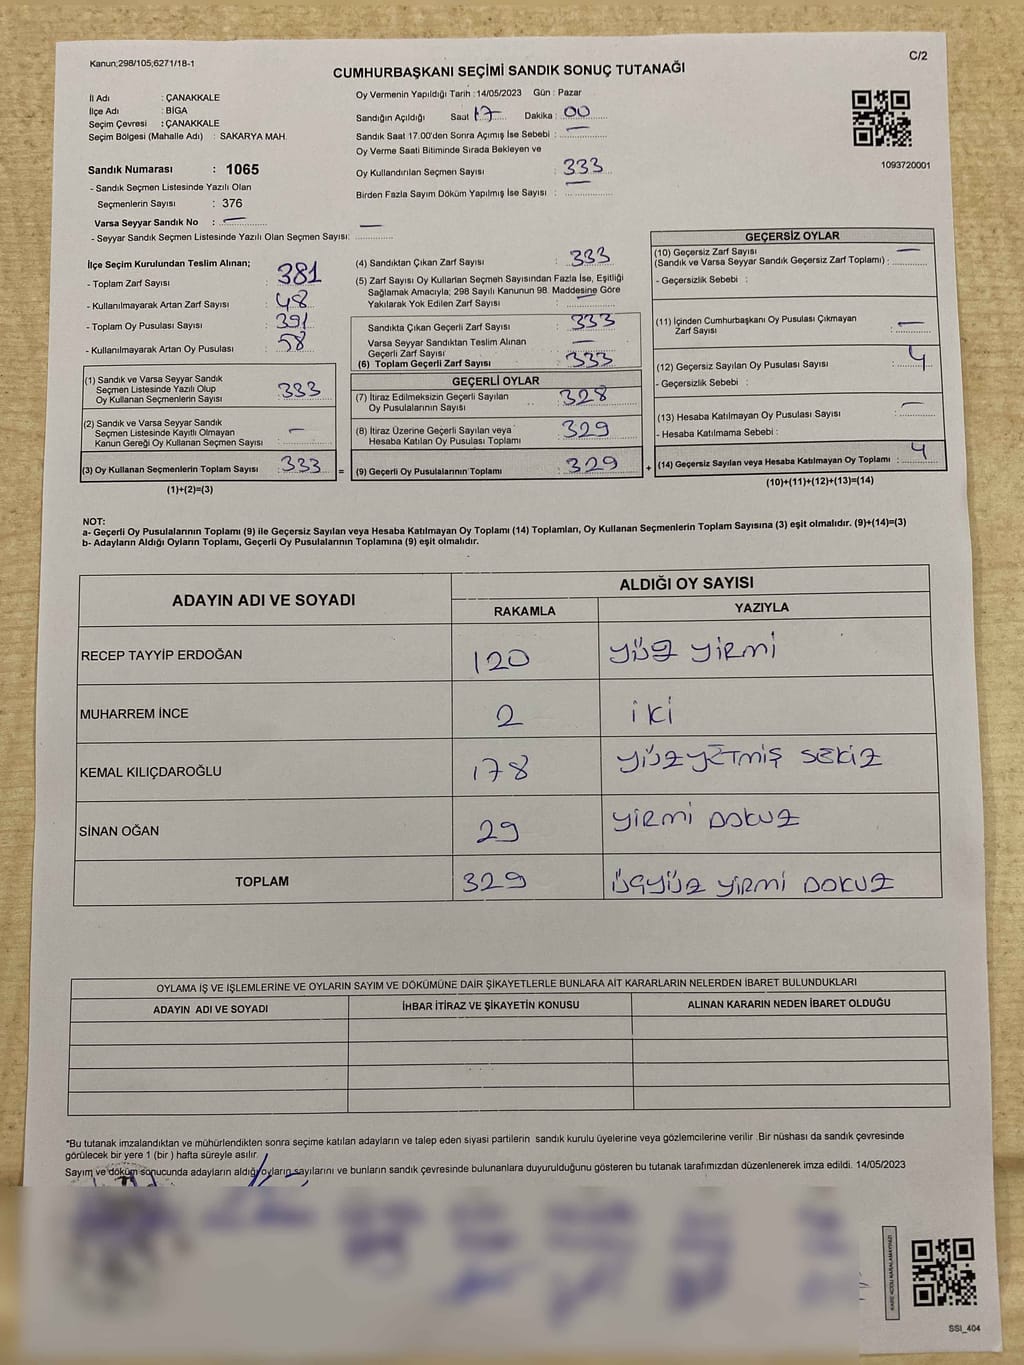 Kanun;298/105;6271/18-1
C/2
CUMHURBAŞKANI SEÇİMİ SANDIK SONUÇ TUTANAĞI
İl Adı : ÇANAKKALE
İlçe Adı : BİGA
Seçim Çevresi : ÇANAKKALE
Seçim Bölgesi (Mahalle Adı) : SAKARYA MAH.
Sandık Numarası : 1065
- Sandık Seçmen Listesinde Yazılı Olan
Seçmenlerin Sayısı : 376
Varsa Seyyar Sandık No : —
- Seyyar Sandık Seçmen Listesinde Yazılı Olan Seçmen Sayısı: —
Oy Vermenin Yapıldığı Tarih : 14/05/2023 Gün : Pazar
Sandığın Açıldığı Saat 17 Dakika : 00
Sandık Saat 17.00'den Sonra Açımış İse Sebebi : —
Oy Verme Saati Bitiminde Sırada Bekleyen ve
Oy Kullandırılan Seçmen Sayısı : 333
Birden Fazla Sayım Döküm Yapılmış İse Sayısı : —
1093720001
İlçe Seçim Kurulundan Teslim Alınan;
- Toplam Zarf Sayısı : 381
- Kullanılmayarak Artan Zarf Sayısı : 48
- Toplam Oy Pusulası Sayısı : 391
- Kullanılmayarak Artan Oy Pusulası : 58
(1) Sandık ve Varsa Seyyar Sandık
Seçmen Listesinde Yazılı Olup
Oy Kullanan Seçmenlerin Sayısı : 333
(2) Sandık ve Varsa Seyyar Sandık
Seçmen Listesinde Kayıtlı Olmayan
Kanun Gereği Oy Kullanan Seçmen Sayısı : —
(3) Oy Kullanan Seçmenlerin Toplam Sayısı : 333 =
(1)+(2)=(3)
(4) Sandıktan Çıkan Zarf Sayısı : 333
(5) Zarf Sayısı Oy Kullanan Seçmen Sayısından Fazla İse, Eşitliği
Sağlamak Amacıyla; 298 Sayılı Kanunun 98. Maddesine Göre
Yakılarak Yok Edilen Zarf Sayısı : —
Sandıkta Çıkan Geçerli Zarf Sayısı : 333
Varsa Seyyar Sandıktan Teslim Alınan
Geçerli Zarf Sayısı : —
(6) Toplam Geçerli Zarf Sayısı : 333
GEÇERLİ OYLAR
(7) İtiraz Edilmeksizin Geçerli Sayılan
Oy Pusulalarının Sayısı : 328
(8) İtiraz Üzerine Geçerli Sayılan veya
Hesaba Katılan Oy Pusulası Toplamı : 329
(9) Geçerli Oy Pusulalarının Toplamı : 329 +
GEÇERSİZ OYLAR
(10) Geçersiz Zarf Sayısı
(Sandık ve Varsa Seyyar Sandık Geçersiz Zarf Toplamı) : —
- Geçersizlik Sebebi :
(11) İçinden Cumhurbaşkanı Oy Pusulası Çıkmayan
Zarf Sayısı : —
(12) Geçersiz Sayılan Oy Pusulası Sayısı : 4
- Geçersizlik Sebebi :
(13) Hesaba Katılmayan Oy Pusulası Sayısı : —
- Hesaba Katılmama Sebebi :
(14) Geçersiz Sayılan veya Hesaba Katılmayan Oy Toplamı : 4
(10)+(11)+(12)+(13)=(14)
NOT:
a- Geçerli Oy Pusulalarının Toplamı (9) ile Geçersiz Sayılan veya Hesaba Katılmayan Oy Toplamı (14) Toplamları, Oy Kullanan Seçmenlerin Toplam Sayısına (3) eşit olmalıdır. (9)+(14)=(3)
b- Adayların Aldığı Oyların Toplamı, Geçerli Oy Pusulalarının Toplamına (9) eşit olmalıdır.
ADAYIN ADI VE SOYADI
ALDIĞI OY SAYISI
RAKAMLA YAZIYLA
RECEP TAYYİP ERDOĞAN 120 YÜZ YİRMİ
MUHARREM İNCE 2 İKİ
KEMAL KILIÇDAROĞLU 178 YÜZYETMİŞ SEKİZ
SİNAN OĞAN 29 YİRMİ DOKUZ
TOPLAM 329 ÜÇYÜZ YİRMİ DOKUZ
OYLAMA İŞ VE İŞLEMLERİNE VE OYLARIN SAYIM VE DÖKÜMÜNE DAİR ŞİKAYETLERLE BUNLARA AİT KARARLARIN NELERDEN İBARET BULUNDUKLARI
ADAYIN ADI VE SOYADI İHBAR İTİRAZ VE ŞİKAYETİN KONUSU ALINAN KARARIN NEDEN İBARET OLDUĞU
*Bu tutanak imzalandıktan ve mühürlendikten sonra seçime katılan adayların ve talep eden siyasi partilerin sandık kurulu üyelerine veya gözlemcilerine verilir .Bir nüshası da sandık çevresinde
görülecek bir yere 1 (bir ) hafta süreyle asılır.
Sayım ve döküm sonucunda adayların aldığı oyların sayılarını ve bunların sandık çevresinde bulunanlara duyurulduğunu gösteren bu tutanak tarafımızdan düzenlenerek imza edildi. 14/05/2023
KARE KODU KARALAMAYINIZ!
SSI_404